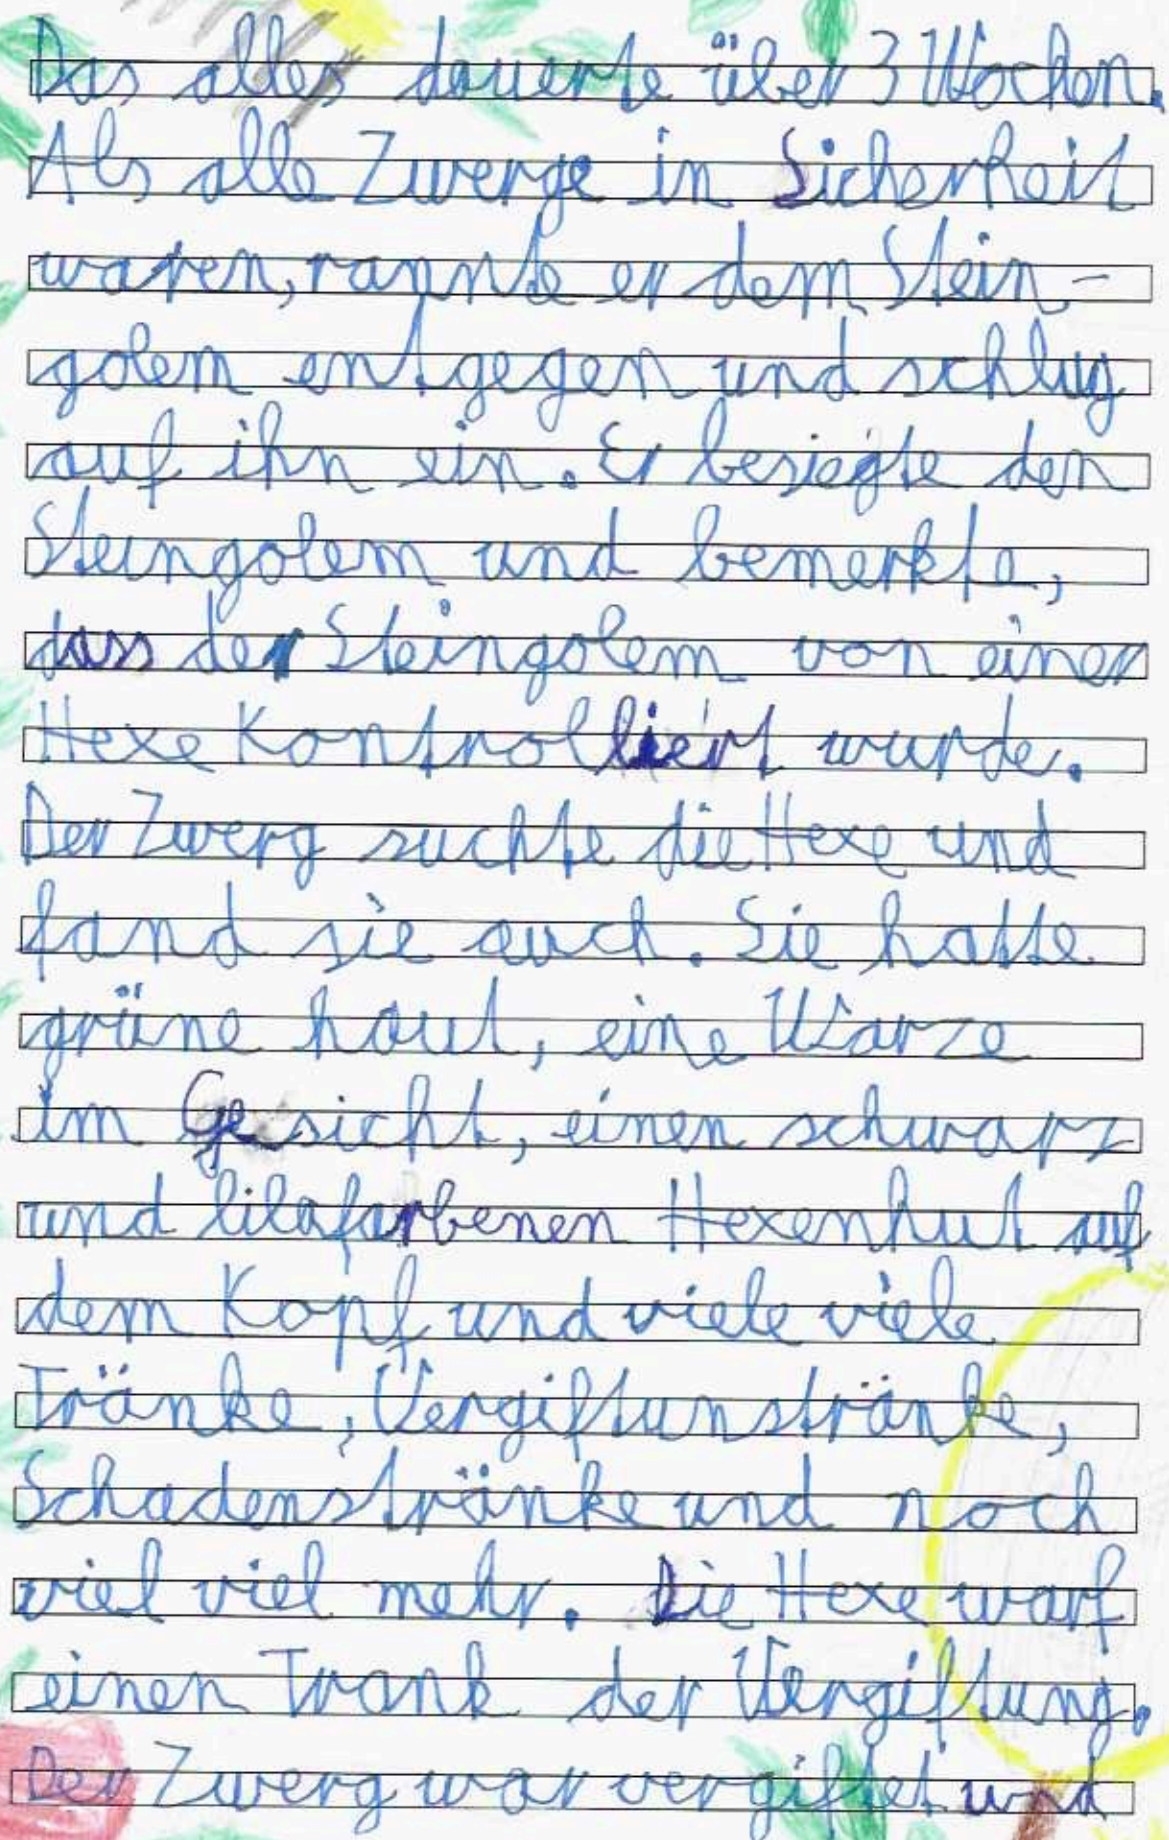 Das alles dauerte über 3 Wochen.
Als alle Zwerge in Sicherheit
waren, rannte er dem Stein-
golem entgegen und schlug
auf ihn ein. Er besiegte den
Steingolem und bemerkte,
dass der Steingolem von einer
Hexe Kontrolliert wurde.
Der Zwerg suchte die Hexe und
fand sie auch. Sie hatte
grüne haut, eine Warze
im Gesicht, einen schwarz
und lilafarbenen Hexenhut auf
dem Kopf und viele viele
Tränke, Vergiftunstränke,
Schadenstränke und noch
viel viel mehr. Die Hexe warf
einen Trank der Vergiftung.
Der Zwerg war vergiftet und